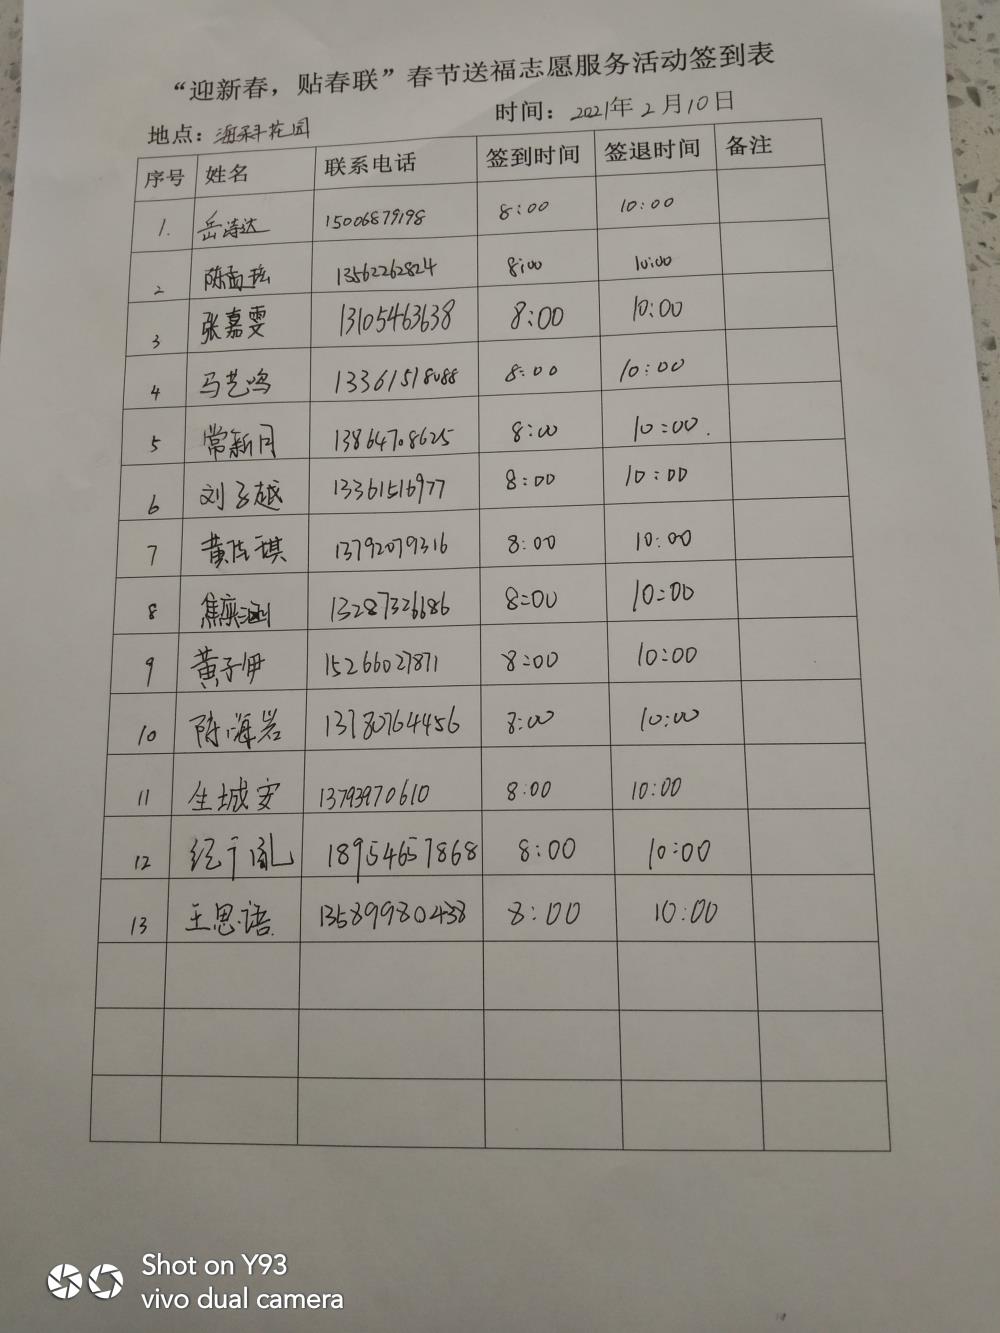 “迎新春，贴春联”春节送福志愿服务活动签到表
地点：海科花园 时间：2021年2月10日
序号 姓名 联系电话 签到时间 签退时间 备注
1. 岳诗达 15006879198 8:00 10:00
2 陈 13562262824 8:00 10:00
3 张嘉雯 13105463638 8:00 10:00
4 马艺鸣 13361518088 8:00 10:00
5 常新月 13864708625 8:00 10:00.
6 刘子越 13361516977 8:00 10:00
7 黄 琪 13792079316 8:00 10:00
8 焦奕涵 13287326686 8:00 10:00
9 黄子伊 15266027871 8:00 10:00
10 陈海岩 13780764456 8:00 10:00
11 生城安 13793970610 8:00 10:00
12 纪 18954657868 8:00 10:00
13 王思语 13589980438 8:00 10:00
Shot on Y93
vivo dual camera